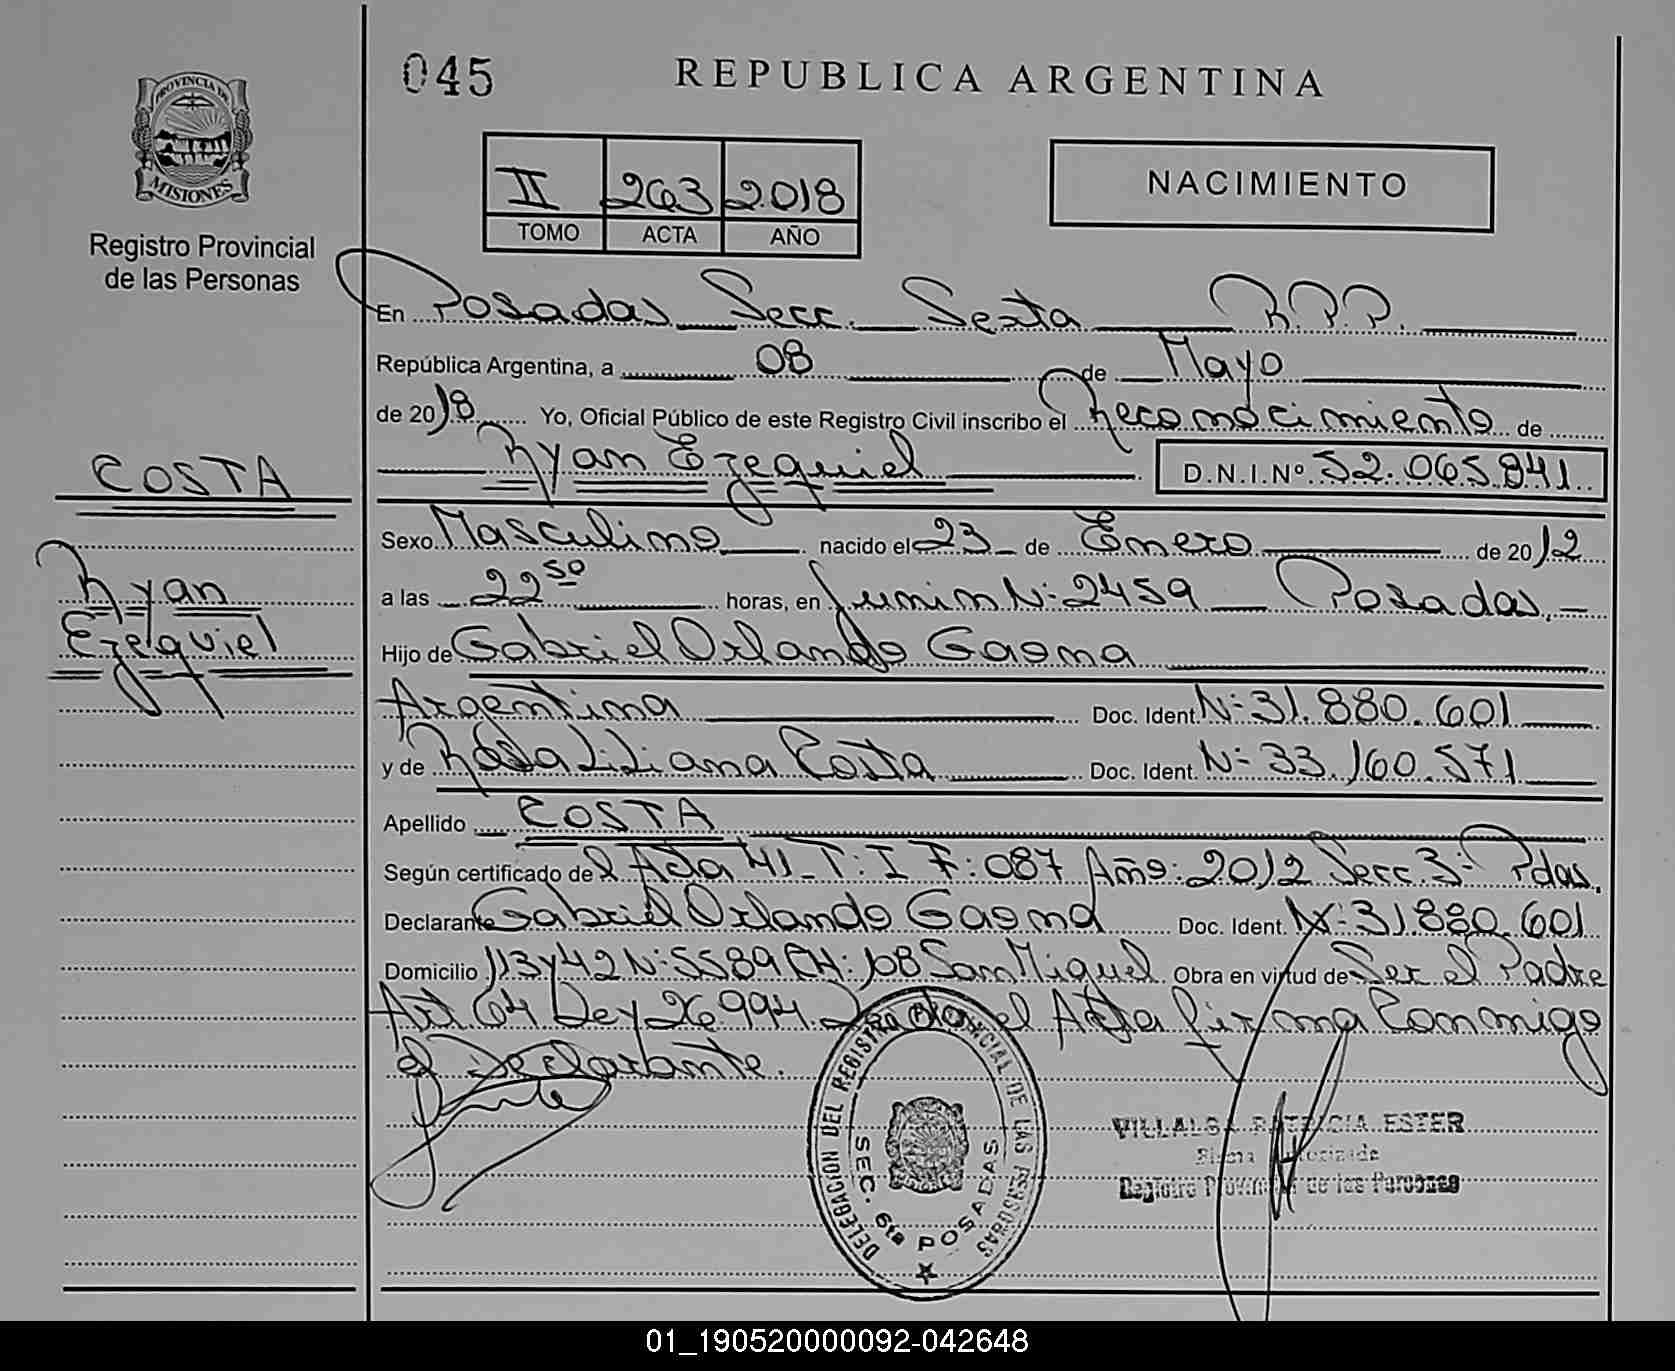 045
REPUBLICA ARGENTINA
PROVINCIA DE
MISIONES
Registro Provincial
de las Personas
II 263 2018
TOMO ACTA AÑO
NACIMIENTO
En Posadas Secc. Sexta R.P.P.
República Argentina, a 08 de Mayo
de 2018 Yo, Oficial Público de este Registro Civil inscribo el Reconocimiento de
Ryan Ezequiel D.N.I.Nº 52.065.841
COSTA
Ryan
Ezequiel
Sexo Masculino nacido el 23 de Enero de 2012
a las 22 50 horas, en Junin Nº 2459 Posadas
Hijo de Gabriel Orlando Gaona
Argentina Doc. Ident. Nº 31.880.601
y de Rosa Liliana Costa Doc. Ident. Nº 33.160.571
Apellido COSTA
Según certificado de l Acta 41 T: I F: 087 Año: 2012 Secc. 3ª Pdas.
Declarante Gabriel Orlando Gaona Doc. Ident. Nº 31.880.601
Domicilio 113 y 42 Nº 5589 CH: 108 San Miguel Obra en virtud de Ser el Padre
Art. 64 Ley 26994 el Acta firma Conmigo
el Declarante.
DELEGACION DEL REGISTRO PROVINCIAL DE LAS PERSONAS
SEC. 6ta POSADAS
VILLALBA PATRICIA ESTER
Firma Autorizada
Registro Provincial de las Personas
01_190520000092-042648